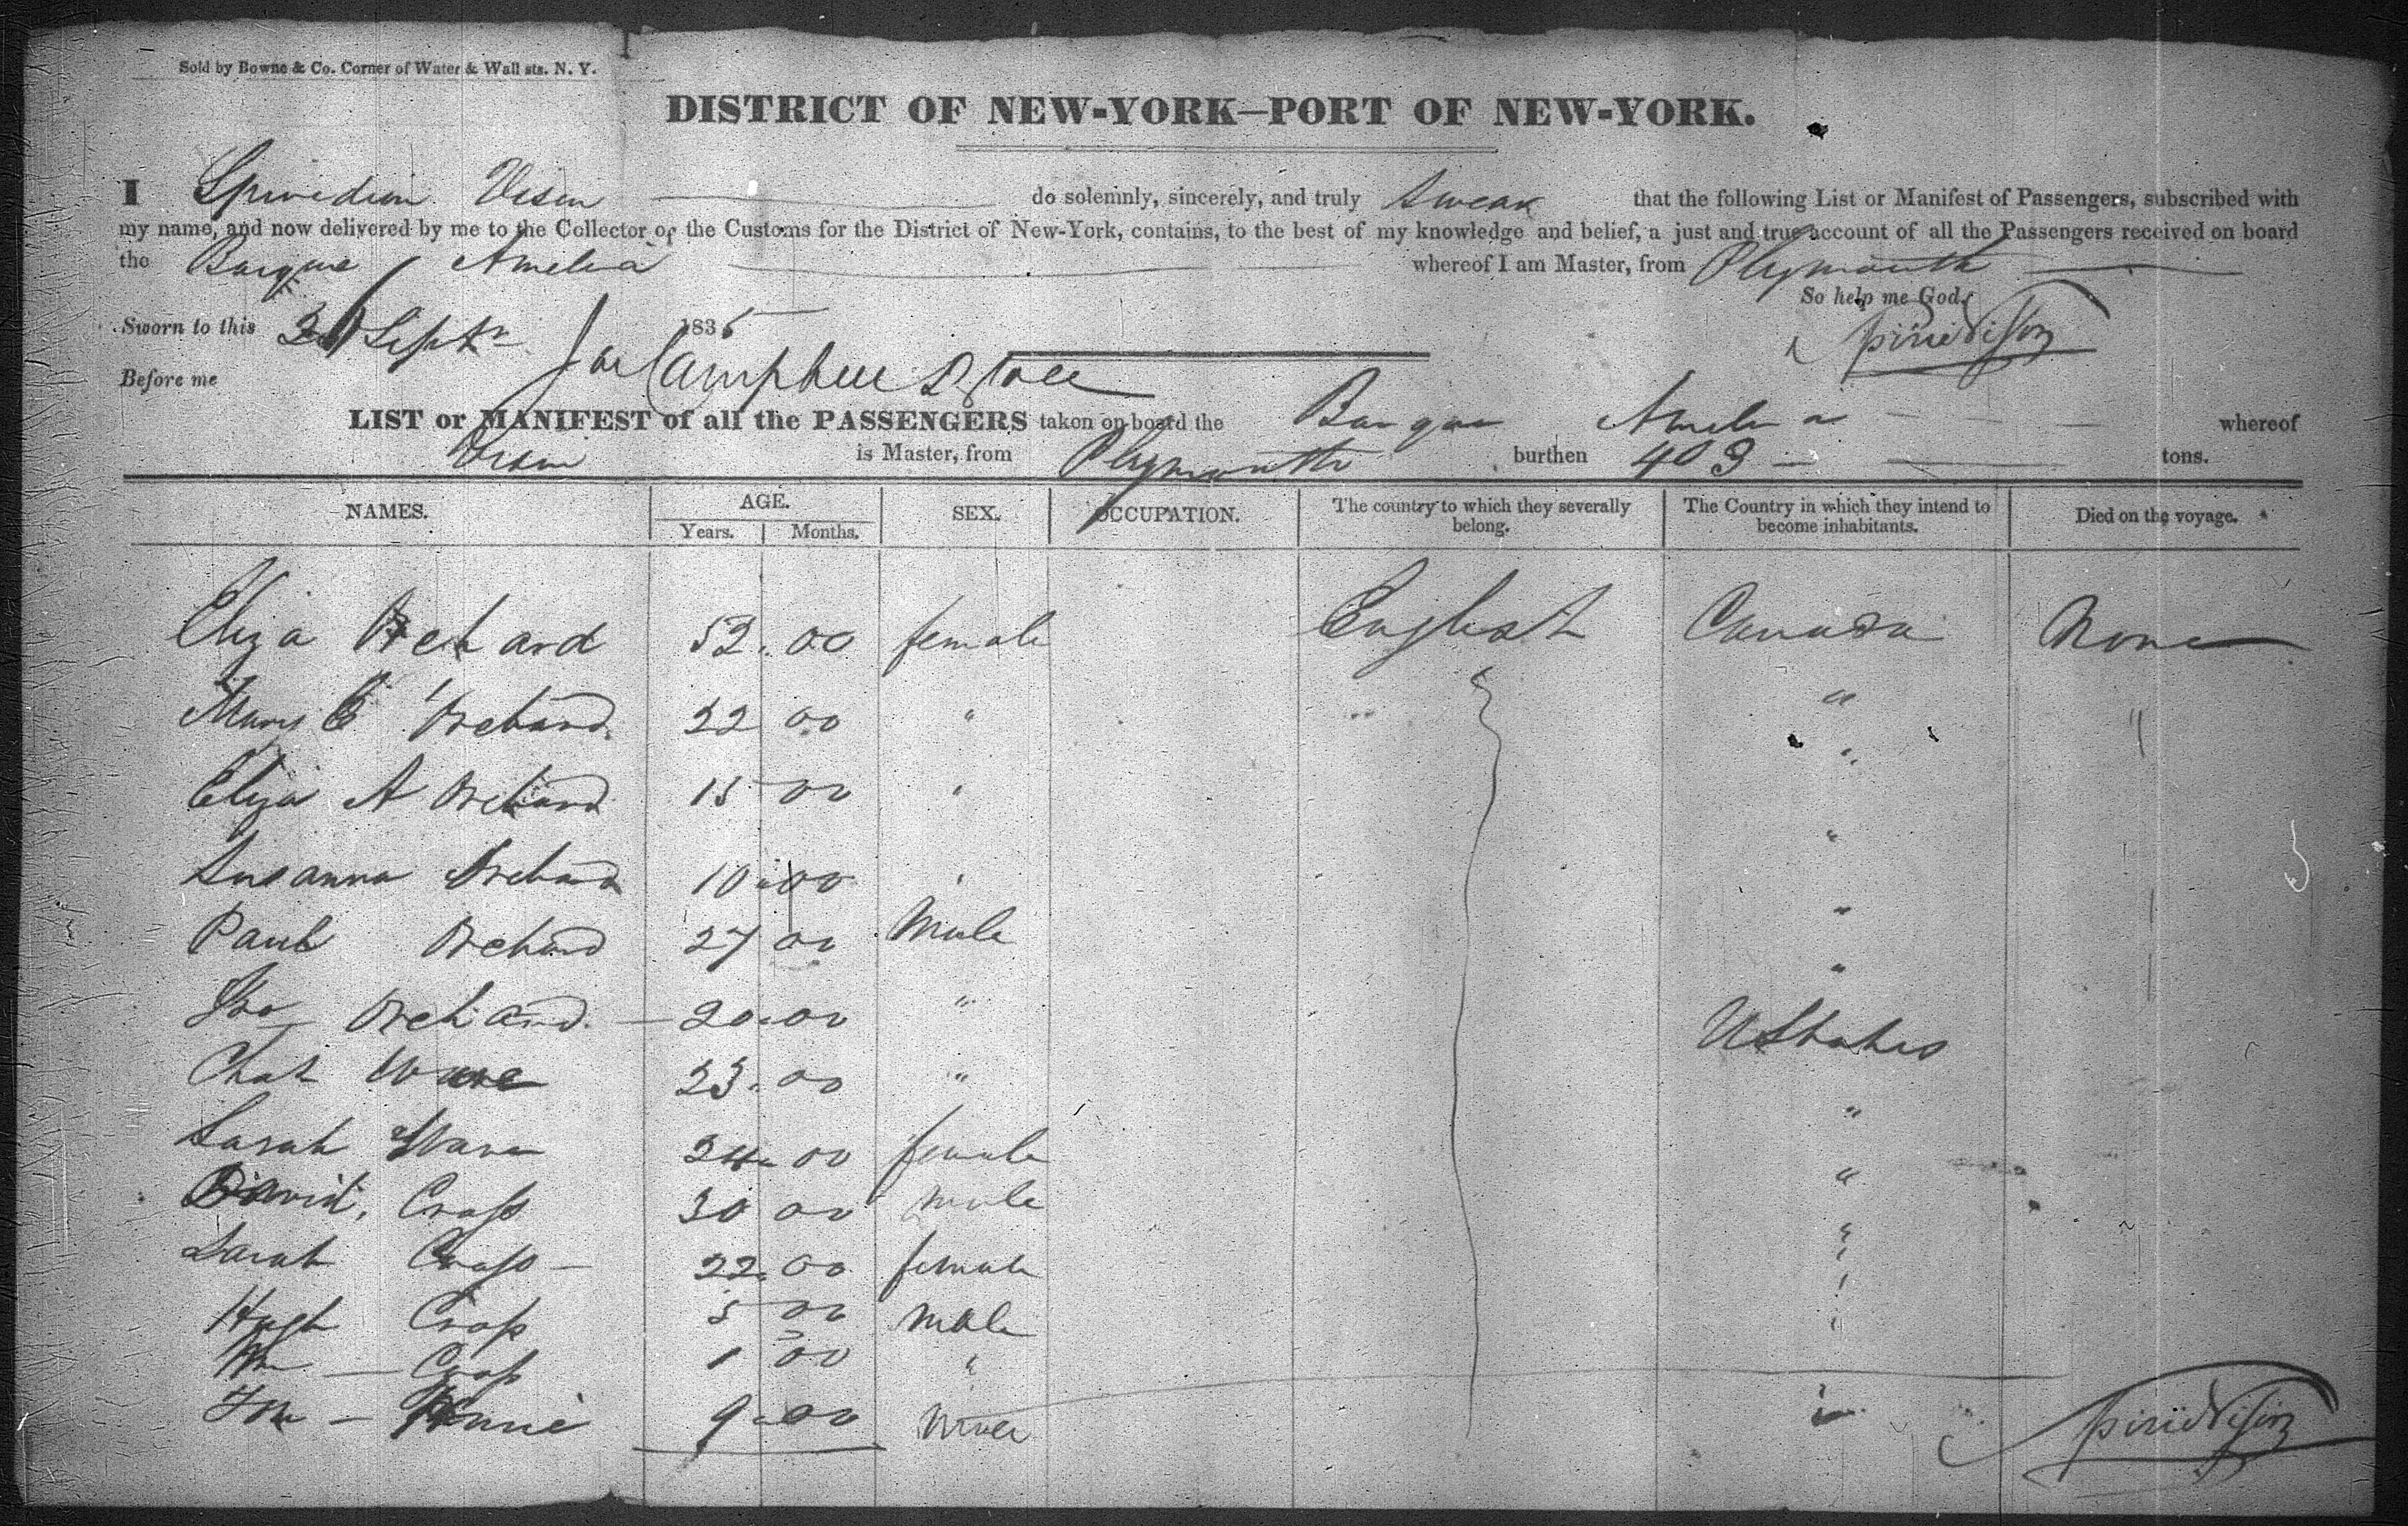 Sold by Bowne & Co. Corner of Water & Wall sts. N. Y.
DISTRICT OF NEW-YORK—PORT OF NEW-YORK.
I do solemnly, sincerely, and truly Swear that the following List or Manifest of Passengers, subscribed with
my name, and now delivered by me to the Collector of the Customs for the District of New-York, contains, to the best of my knowledge and belief, a just and true account of all the Passengers received on board
the Barque Amelia whereof I am Master, from Plymouth
So help me God.
Sworn to this Septr 1835
Before me
LIST or MANIFEST of all the PASSENGERS taken on board the Barque Amelia whereof
is Master, from Plymouth burthen 409 tons.
NAMES. AGE. Years. Months. SEX. OCCUPATION. The country to which they severally belong. The Country in which they intend to become inhabitants. Died on the voyage.
Eliza Orchard 52 . 00 female English Canada None
Mary E Orchard 22 00 " " "
Eliza A Orchard 15 00 " "
Susanna Orchard 10 . 00 " "
Paul Orchard 27 00 Male "
Jno Orchard — 20 . 00 " "
Ware 23 . 00 " U States
Sarah Ware 24 . 00 female "
David, Crass 30 00 male "
Sarah Crass — 22 . 00 female "
Hugh Crass 5 00 male "
Wm — Crass 1 00 " "
9 . 00 "